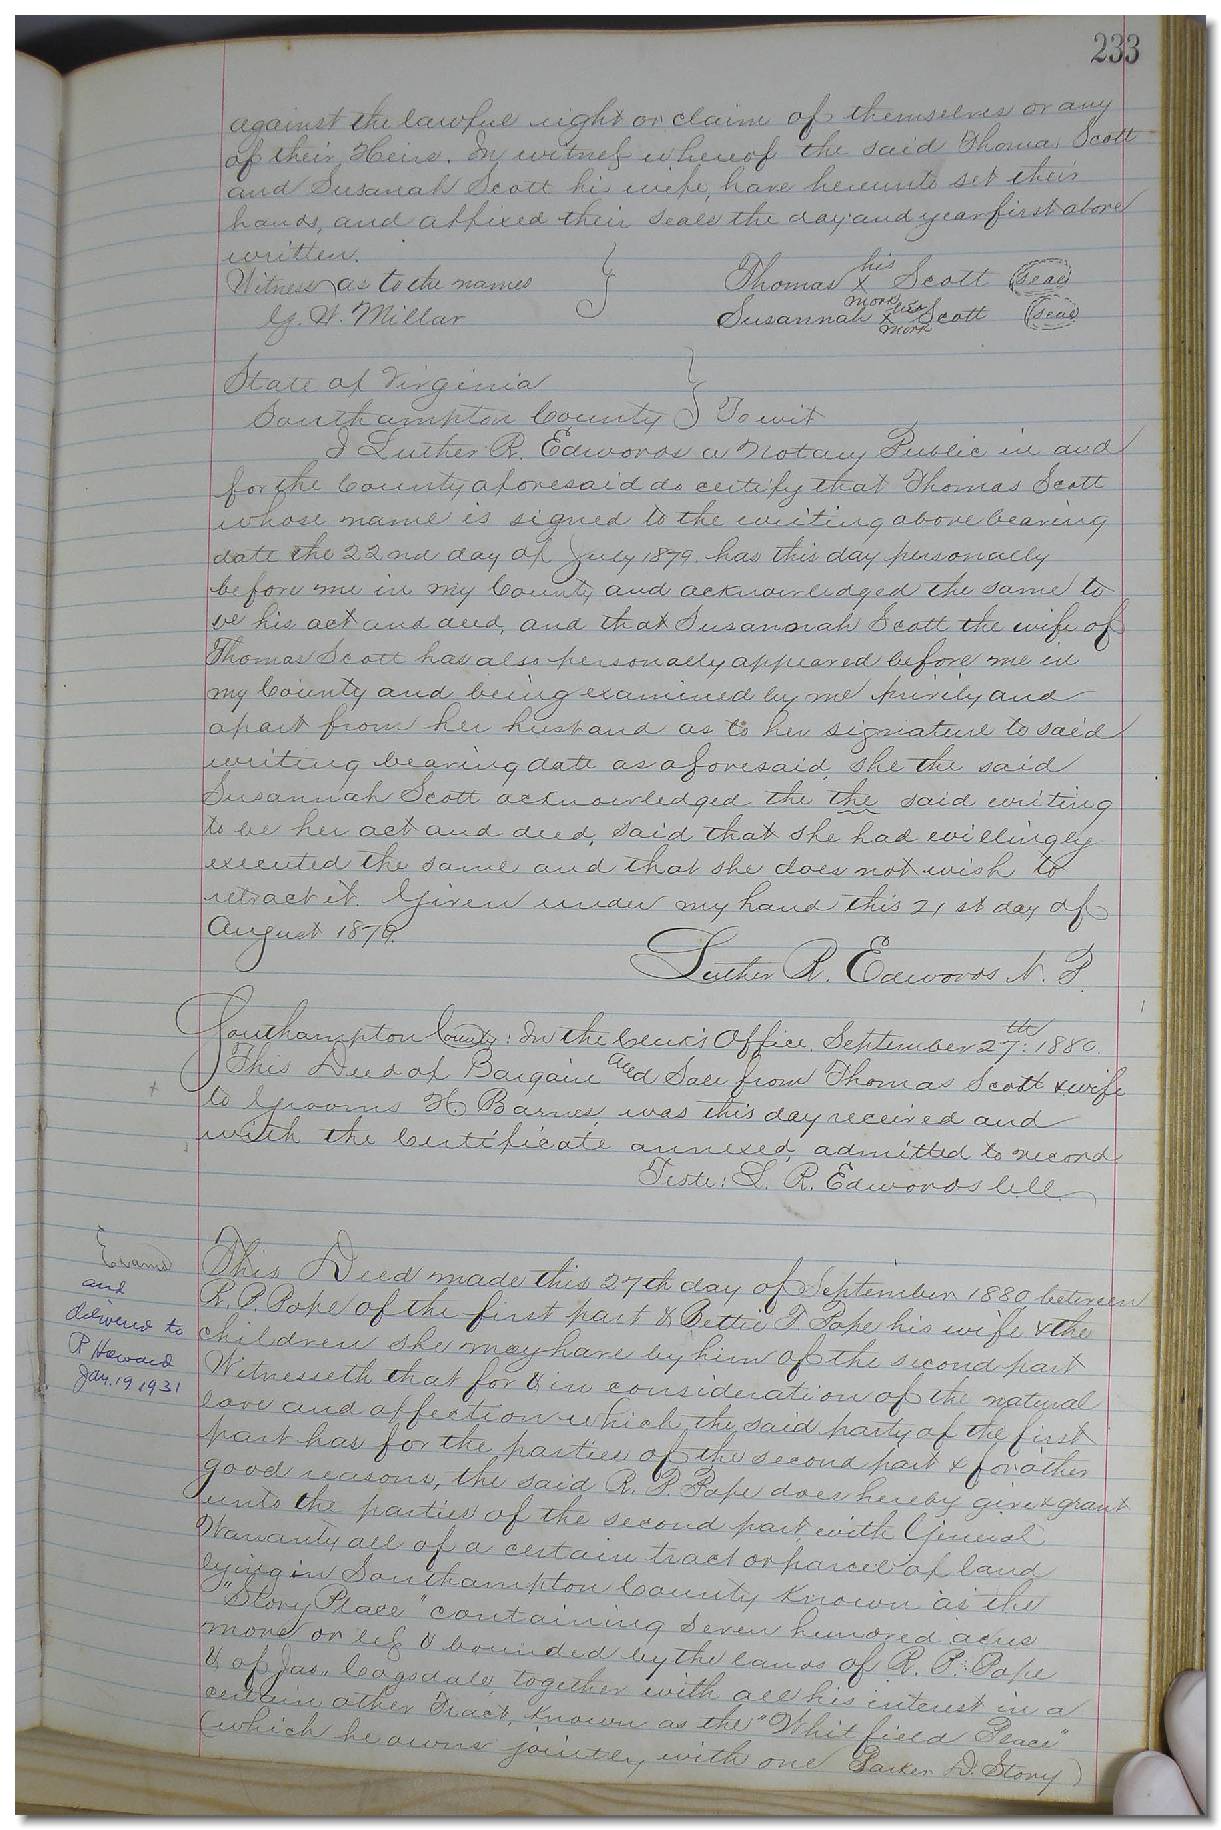 233
against the lawful right or claim of themselves or any
of their Heirs. In witness whereof the said Thomas Scott
and Susanah Scott his wife, have hereunto set their
hands, and affixed their seals the day and year first above
written.
Witness as to the names } Thomas his x mark Scott (Seal)
G. W. Millar Susannah her x mark Scott (Seal)
State of Virginia }
Southampton County } To wit
I Luther R. Edwards a Notary Public in and
for the County aforesaid do certify that Thomas Scott
whose name is signed to the writing above bearing
date the 22nd day of July 1879. has this day personally
before me in my County and acknowledged the same to
be his act and deed, and that Susannah Scott the wife of
Thomas Scott has also personally appeared before me in
my County and being examined by me privily and
apart from her husband as to her signature to said
writing bearing date as aforesaid, she the said
Susannah Scott acknowledged the the said writing
to be her act and deed, said that she had willingly
executed the same and that she does not wish to
retract it. Given under my hand this 21st day of
August 1879.
Luther R. Edwards N. P.
Southampton County: In the Clerk's Office. September 27th: 1880.
This Deed of Bargain and Sale from Thomas Scott & wife
to Grooms H. Barnes, was this day received and
with the Certificate annexed, admitted to record
Teste: L. R. Edwards Clk
Examd
and
delivered to
P. Howard
Jan. 19 1931
This Deed made this 27th day of September 1880 between
R. P. Pope of the first part & Bettie T. Pope his wife & the
children she may have by him of the second part
Witnesseth that for & in consideration of the natural
love and affection which the said party of the first
part has for the parties of the second part & for other
good reasons, the said R. P. Pope does hereby give & grant
unto the parties of the second part, with General
Warranty all of a certain tract or parcel of land
lying in Southampton County known as the
"Story Place" containing seven hundred acres
more or less & bounded by the lands of R. P. Pope
& of Jas. Cogsdale, together with all his interest in a
certain other Tract, known as the "Whitfield Place"
(which he owns jointly with one Parker D. Story)